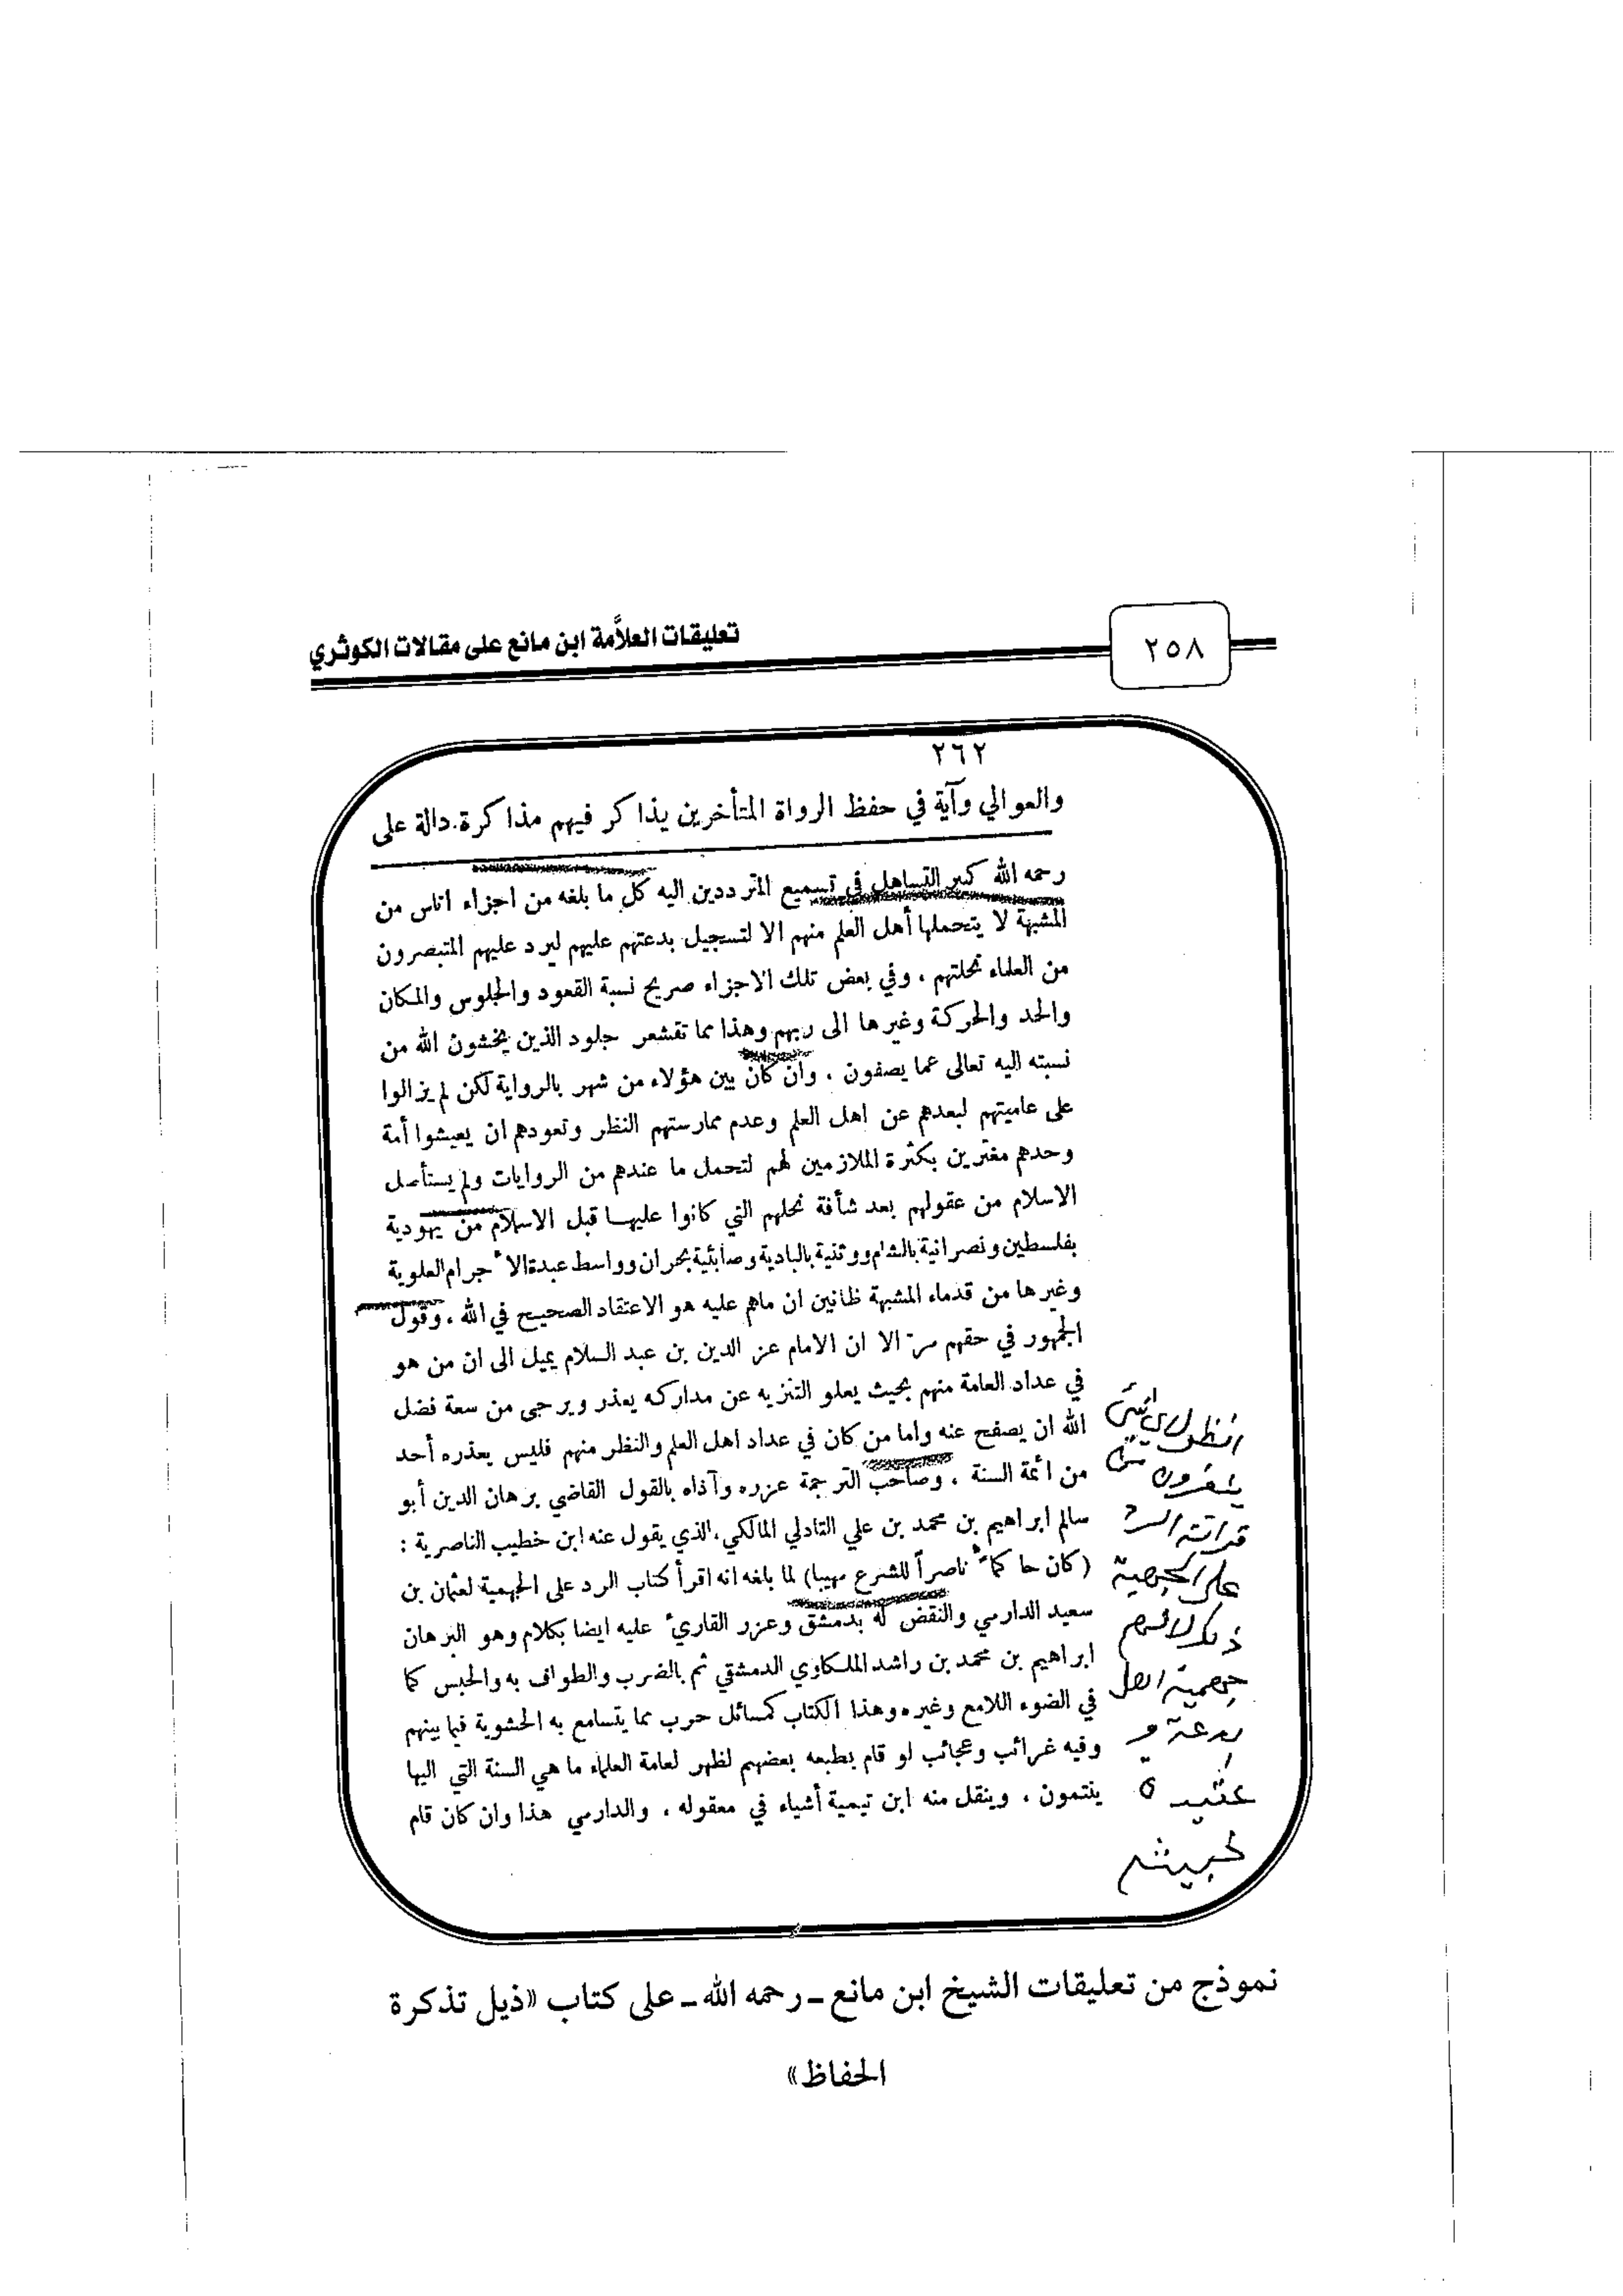 ٢٥٨
تعليقات العلاَّمة ابن مانع على مقالات الكوثري
٢٦٢
والعوالي وآية في حفظ الرواة المتأخرين يذاكر فيهم مذاكرة دالة على
رحمه الله كبير التساهل في تسميع المترددين اليه كل ما بلغه من اجزاء اناس من
المشبهة لا يتحملها أهل العلم منهم الا لتسجيل بدعتهم عليهم ليرد عليهم المتبصرون
من العلماء نحلتهم ، وفي بعض تلك الاجزاء صريح نسبة القعود والجلوس والمكان
والحد والحركة وغيرها الى ربهم وهذا مما تقشعر جلود الذين يخشون الله من
نسبته اليه تعالى عما يصفون . وان كان بين هؤلاء من شهر بالرواية لكن لم يزالوا
على عاميتهم لبعدهم عن اهل العلم وعدم ممارستهم النظر وتعودهم ان يعيشوا أمة
وحدهم مغترين بكثرة الملازمين لهم لتحمل ما عندهم من الروايات ولم يستأصل
الاسلام من عقولهم بعد شأفة نحلهم التي كانوا عليها قبل الاسلام من يهودية
بفلسطين ونصرانية بالشام ووثنية بالبادية وصابئية بحران وواسط عبدة الأجرام العلوية
وغيرها من قدماء المشبهة ظانين ان ماهم عليه هو الاعتقاد الصحيح في الله . وقول
الجمهور في حقهم مر الا ان الامام عز الدين بن عبد السلام يميل الى ان من هو
في عداد العامة منهم بحيث يعلو التنزيه عن مداركه يعذر ويرجى من سعة فضل
الله ان يصفح عنه واما من كان في عداد اهل العلم والنظر منهم فليس يعذره أحد
من ائمة السنة . وصاحب الترجمة عزره وآذاه بالقول القاضي برهان الدين أبو
سالم ابراهيم بن محمد بن علي التادلي المالكي ، الذي يقول عنه ابن خطيب الناصرية :
(كان حاكما ناصراً للشرع مهيبا) لما بلغه انه اقرأ كتاب الرد على الجهمية لعثمان بن
سعيد الدارمي والنقض له بدمشق وعزر القارئ عليه ايضا بكلام وهو البرهان
ابراهيم بن محمد بن راشد الملكاوي الدمشقي ثم بالضرب والطواف به والحبس كما
في الضوء اللامع وغيره وهذا الكتاب كمسائل حرب مما يتسامع به الحشوية فيما بينهم
وفيه غرائب وعجائب لو قام بطبعه بعضهم لظهر لعامة العلماء ما هي السنة التي اليها
ينتمون . وينقل منه ابن تيمية أشياء في معقوله . والدارمي هذا وان كان قام
انظر
ينفرون من
قراءة الرد
على الجهمية
ذلك لانهم
جهمية اهل
بدعة و
عقيدة
خبيثه
نموذج من تعليقات الشيخ ابن مانع ـ رحمه الله ـ على كتاب «ذيل تذكرة
الحفاظ»